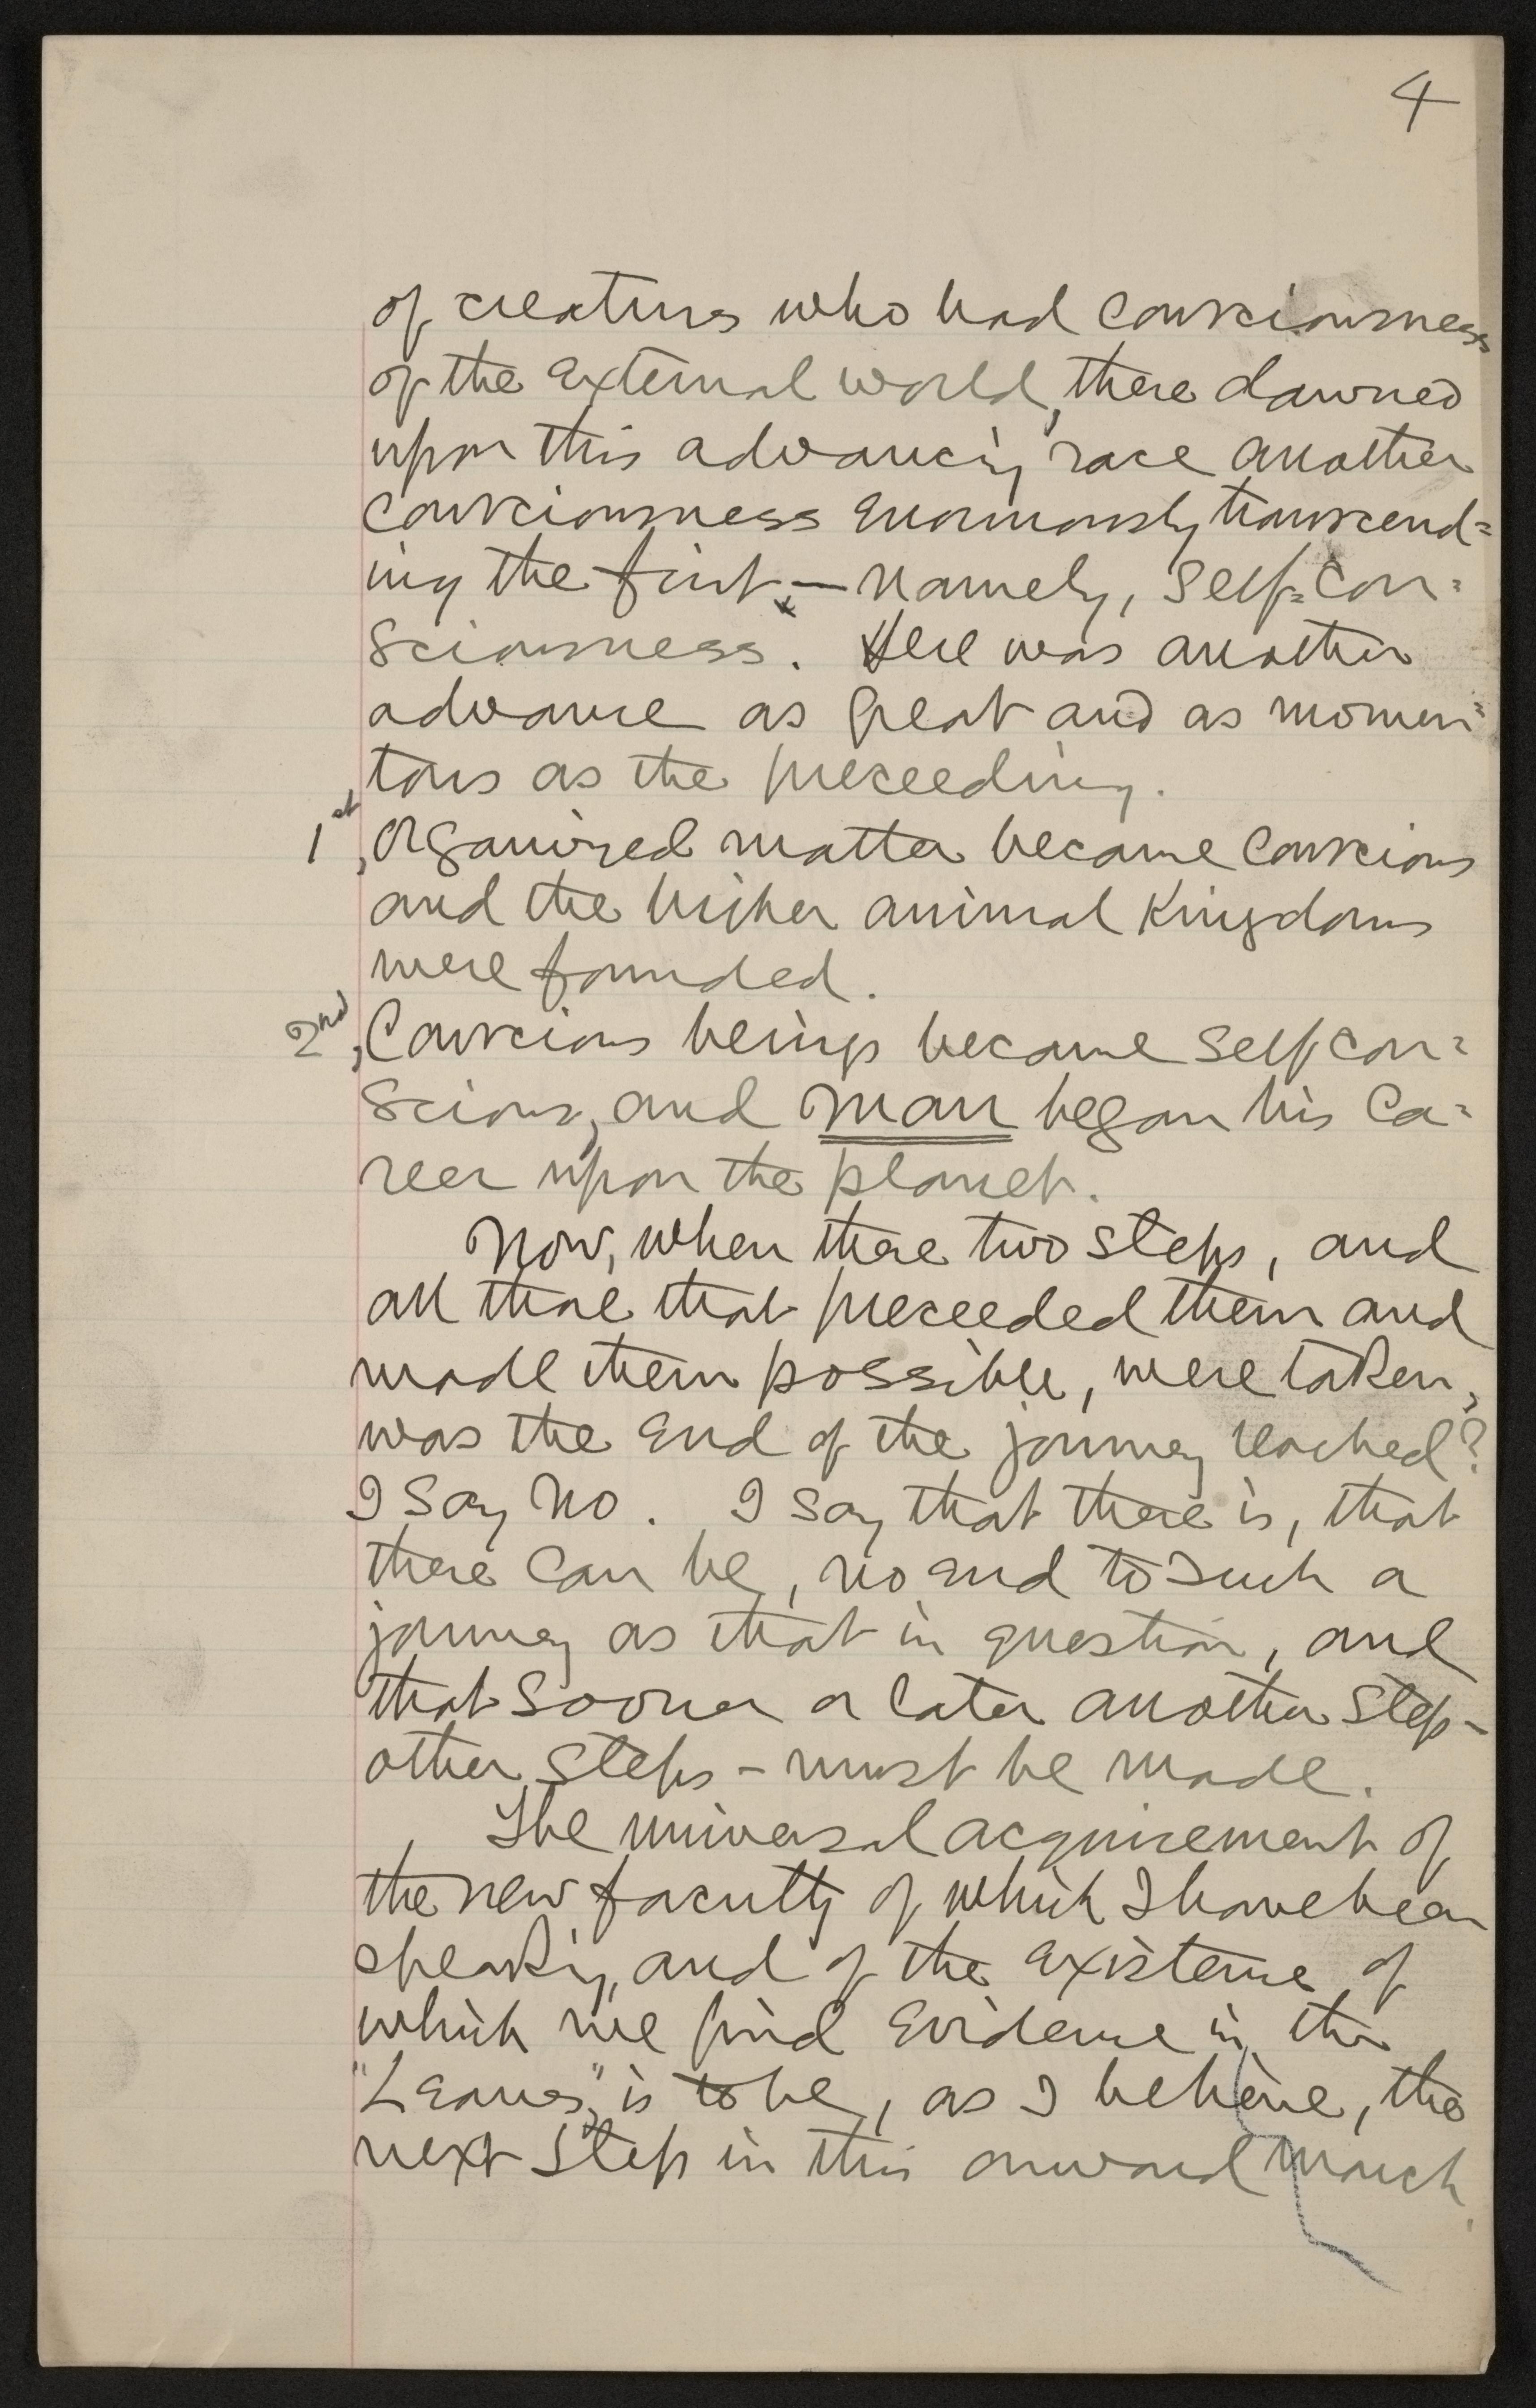 4
of creatures who had consciousness
of the external world, there dawned
upon this advancing race another
consciousness enormously transcend=
ing the first,— namely, self=con=
sciousness. Here was another
advance as great and as momen=
tous as the preceeding.
1st, Organized matter became conscious
and the higher animal Kingdoms
were founded.
2nd, Conscious beings became self con=
scious, and man began his ca=
reer upon the planet.
Now, when these two steps, and
all those that preceeded them and
made them possible, were taken,
was the end of the journey reached?
I say no. I say that there is, that
there can be, no end to such a
journey as that in question, and
that sooner or later another step -
other steps - must be made.
The universal acquirement of
the new faculty of which I have been
speaking, and of the existence of
which we find evidence in the
"Leaves," is to be, as I believe, the
next step in this onward march.